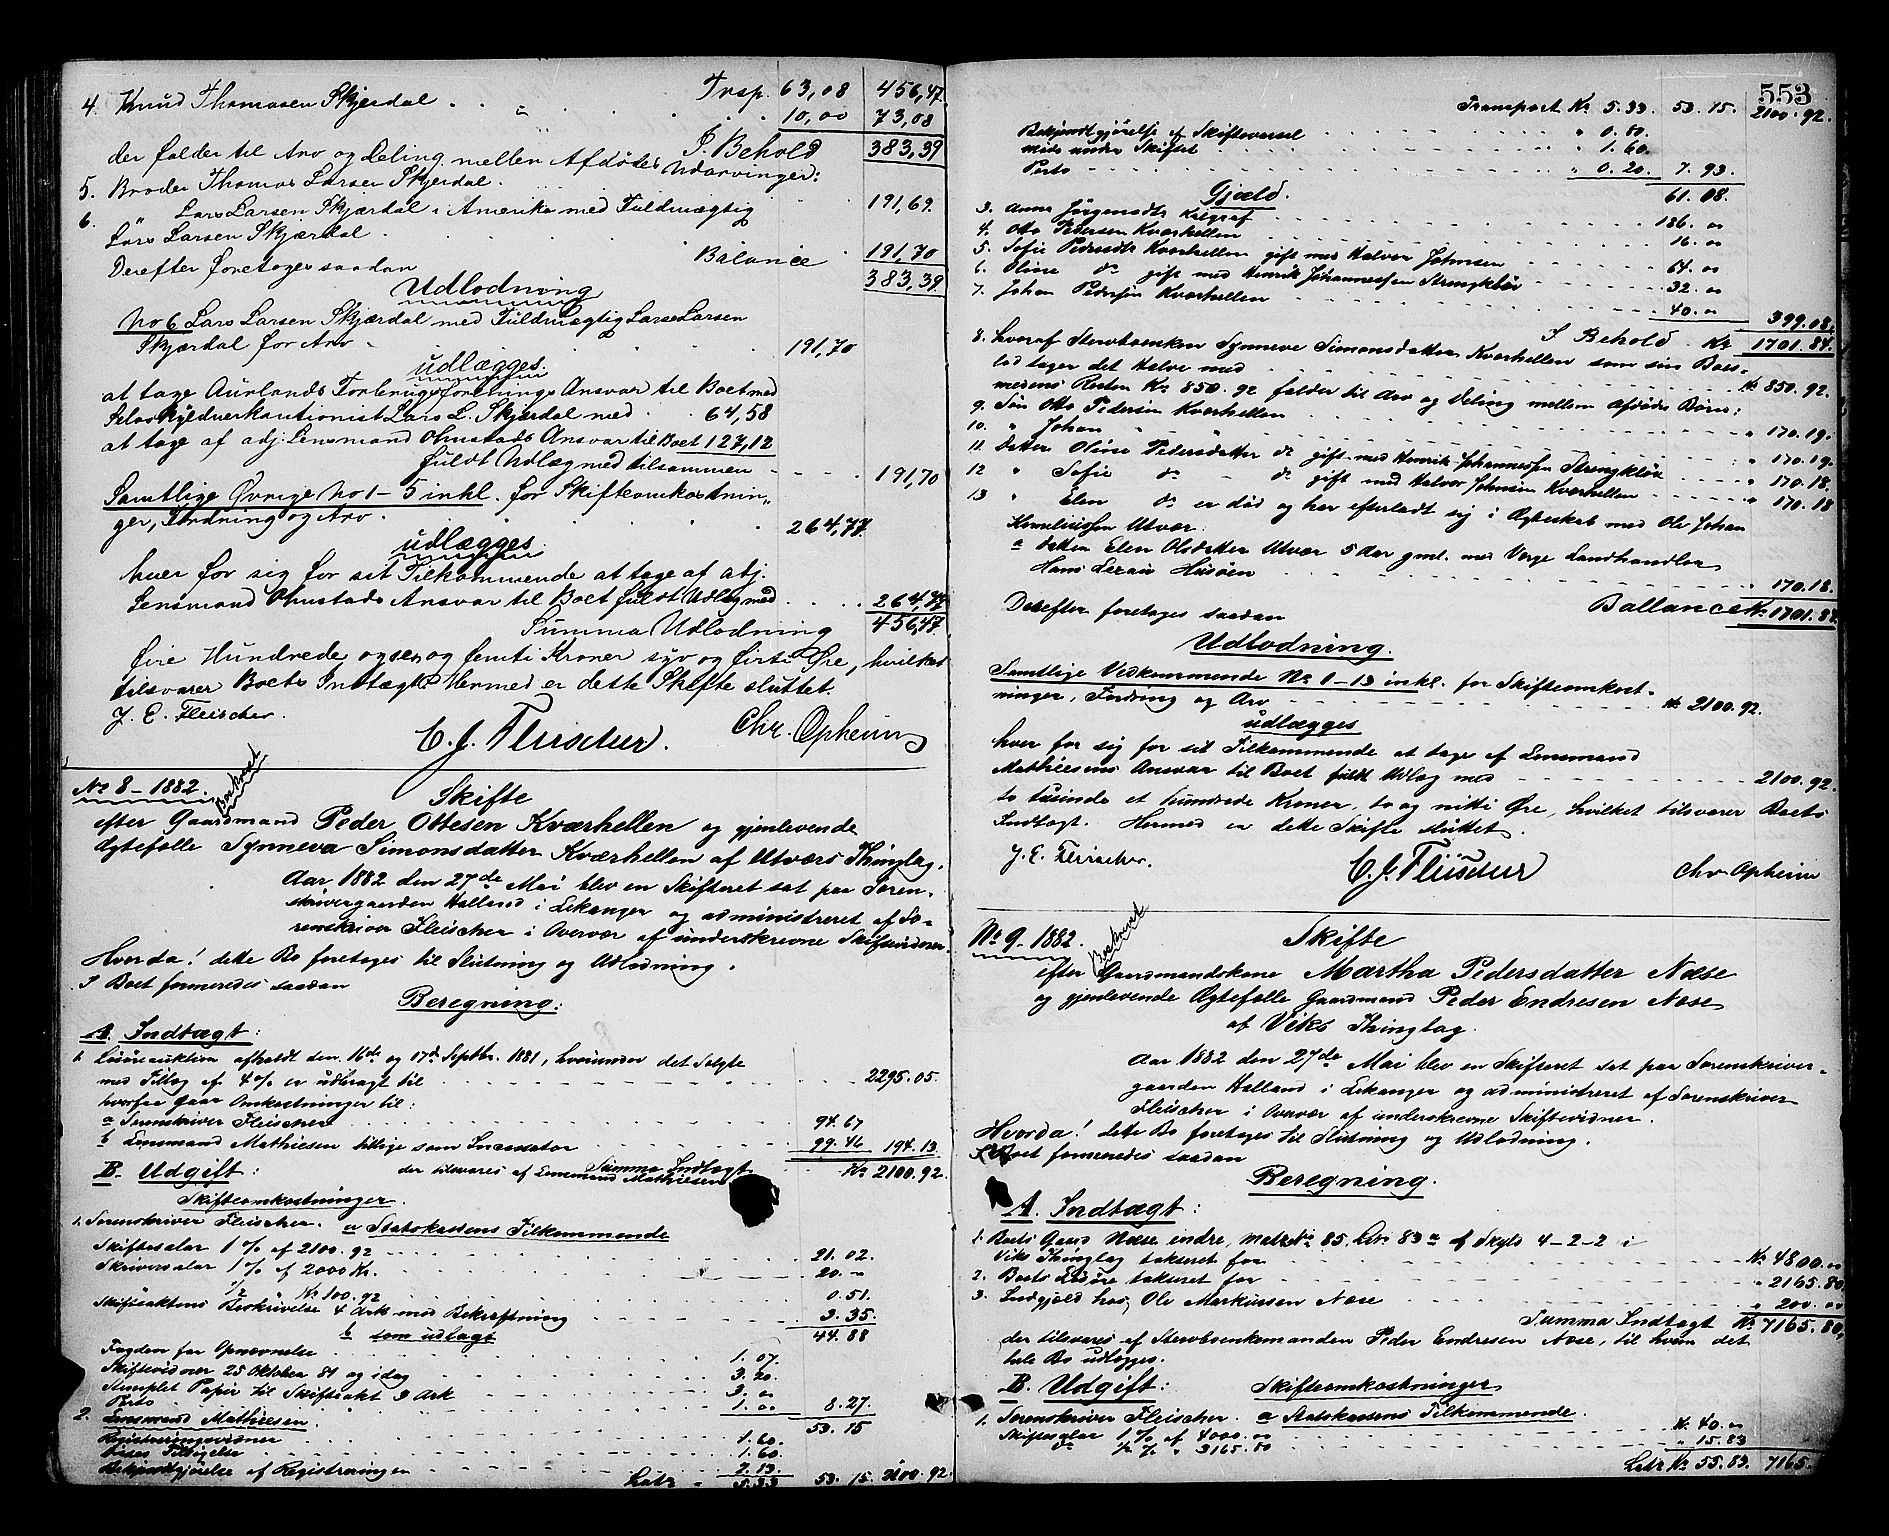 4. Knud Thomasen Skjerdal . . „ . . Trsp. 63,08 456,47
10,00 73,08
I Behold 383,39
der falder til Arv og Deling mellem Afdødes Udarvinger:
5. Broder Thomas Larsen Skjerdal . . . 191,69.
6. „ Lars Larsen Skjærdal i Amerika med Fuldmægtig
Lars Larsen Skjærdal . . . 191,70
Balance 383,39
Derefter foretoges saadan
Udlodning
No 6 Lars Larsen Skjærdal med Fuldmægtig Lars Larsen
Skjærdal for Arv . . . 191,70
udlægges
at tage Aurlands Forbrugsforenings Ansvar til Boet med
Selvskyldnerkautionist Lars L. Skjerdal med . . 64,58
at tage af adj. Lensmand Ohnstads Ansvar til Boet 127,12
fuldt Udlæg med tilsammen - - - 191,70
Samtlige Øvrige No 1 - 5 inkl. for Skifteomkostnin„
ger, Fordring og Arv . . . 264,77
udlægges
hver for sig for sit Tilkommende at tage af adj.
Lensmand Ohnstads Ansvar til Boet fuldt Udlæg med . . . 264,77
Summa Udlodning 456,47
fire Hundrede og sex og femti Kroner syv og firti Øre, hvilket
tilsvarer Boets Indtægt. Hermed er dette Skifte sluttet.
J. E. Fleischer. C. J. Fleischer. Chr. Opheim
No 8 - 1882. Beskrevet
Skifte
efter Gaardmand Peder Ottesen Kværhellen og gjenlevende
Ægtefolle Synneva Simonsdatter Kværhellen af Utvær Thinglag.
Aar 1882 den 27de Mai blev en Skifteret sat paa Soren-
skrivergaarden Halland i Lekanger og administreret af So-
renskriver Fleischer i Overvær af underskrevne Skiftevidner.
Hvorda! dette Bo foretoges til Slutning og Udlodning.
I Boet formeredes saadan
Beregning:
A. Indtægt:
1. Løsøreauktion afholdt den 16de og 17de Septbr. 1881, hvorunder det Solgte
med Tillæg af 4 % er udbragt til - - - 2295.05.
hvorfra gaar Omkostninger til:
a Sorenskriver Fleischer - - - 94.67
b Lensmand Mathiesen tillige som Incassator 99.46 194.13
Summa Indtægt Kr 2100.92.
der tilsvares af Lensmand Mathiesen
B. Udgift:
Skifteomkostninger.
1. Sorenskriver Fleischer. a Statskassens Tilkommende
Skiftesalar 1 % af 2100.92 - - - 21.02.
Skriversalar 1 % af 2000 Kr. - - - 20.-
" 1/2 " " Kr 100.92 - - - 0.51.
Skifteaktens Beskrivelse 4 Ark med Bekræftning - - - 3.35.
44.88
b som udlagt
Fogden for Opnævnelse - - - 1.07.
Skiftevidner 25 Oktober 81 og idag - - - 3.20.
Stemplet Papir til Skifteakt 3 Ark - - - 3.00
Porto - - - 1.00 8.27.
53.15
2. Lensmand Mathiesen.
Registreringsvidner - - - 1.60.
Deres Tilsigelse - - - 1.60
Bekjendtgjørelse af Registreringen - - - 2.13.
Latr - 5.33 53.15 2100.92
553
Transport Kr. 5.33. 53.15. 2100.92.
Bekjendtgjørelse af Skiftevarsel - - - " 0.80.
møde under Skiftet - - - " 1.60.
Porto - - - " 0.20. 7.93.
61.08.
Gjæld.
3. Anna Jørgensdtr Kalgraf - - - 186.00
4. Otto Pedersen Kværhellen - - - 16.00
5. Sofie Pedersdtr Kværhellen gift med Halvor Johnsen - - - 64.00
6. Oline do gift med Henrik Johannessen Strengkløv - - - 32.00
7. Johan Pedersen Kværhellen - - - 40.00 399.08.
I Behold . Kr 1701.84.
8. hvoraf Stervboenken Synneve Simonsdatter Kværhellen som sin Boes-
lod tager det Halve med - - - Kr 850.92.
medens Resten Kr 850.92 falder til Arv og Deling mellem Afdødes Børn:
9. Søn Otto Pedersen Kværhellen - - - " 170.19.
10. " Johan " " - - - " 170.19.
11. Datter Oline Pedersdatter do gift med Henrik Johannessen Strengkløv - - " 170.18.
12 " Sofie do - do gift med Halvor Johnsen Kværhellen - - - " 170.18
13 " Elen do er død og har efterladt sig i Ægteskab med Ole Johan
Kornelius sen Utvær:
a datter Elen Olsdatter Utvær 5 Aar gml. med Verge Landhandler
Hans Husøen - - - " 170.18.
Ballance Kr 1701.84
Derefter foretoges saadan
Udlodning.
Samtlige Vedkommende No 1-13 inkl. for Skifteomkost-
ninger, Fordring og Arv - - - Kr 2100.92.
udlægges
hver for sig for sit Tilkommende at tage af Lensmand
Mathiesens Ansvar til Boet fuldt Udlæg med - - - 2100.92.
to tusinde et hundrede Kroner, to og nitti Øre, hvilket tilsvarer Boets
Indtægt. Hermed er dette Skifte sluttet.
J. E. Fleischer. C. J. Fleischer Chr Opheim
No 9. 1882. Beskrevet
Skifte
efter Gaardmandskone Martha Pedersdatter Nese
og gjenlevende Ægtefolle Gaardmand Peder Endresen Nese
af Viks Thinglag.
Aar 1882 den 27de Mai blev en Skifteret sat paa Sorenskriver-
gaarden Halland i Lekanger og administreret af Sorenskriver
Fleischer i Overvær af underskrevne Skiftevidner.
Hvorda! dette Bo foretoges til Slutning og Udlodning.
I Boet formeredes saadan
Beregning.
A. Indtægt:
1. Boets Gaard Nese indre, matr No 85. Lbn 83 a af Skyld 4-2-2 i
Viks Thinglag takseret for - - - Kr 4800.00
2. Boets Løsøre takseret for - - - " 2165.80
3. Indgjæld hos Ole Markussen Nese - - - " 200.00
Summa Indtægt Kr 7165.80.
der tilsvares af Stervboenkemanden Peder Endresen Nese, til hvem det
hele Bo udlægges.
B. Udgift: Skifteomkostninger
1. Sorenskriver Fleischer. a Statskassens Tilkommende.
Skiftesalar 1 % af 4000.00 - - - Kr. 40.00
do 1/2 % " 3165.80 - - - " 15.83
Latr Kr 55.83. 7165.